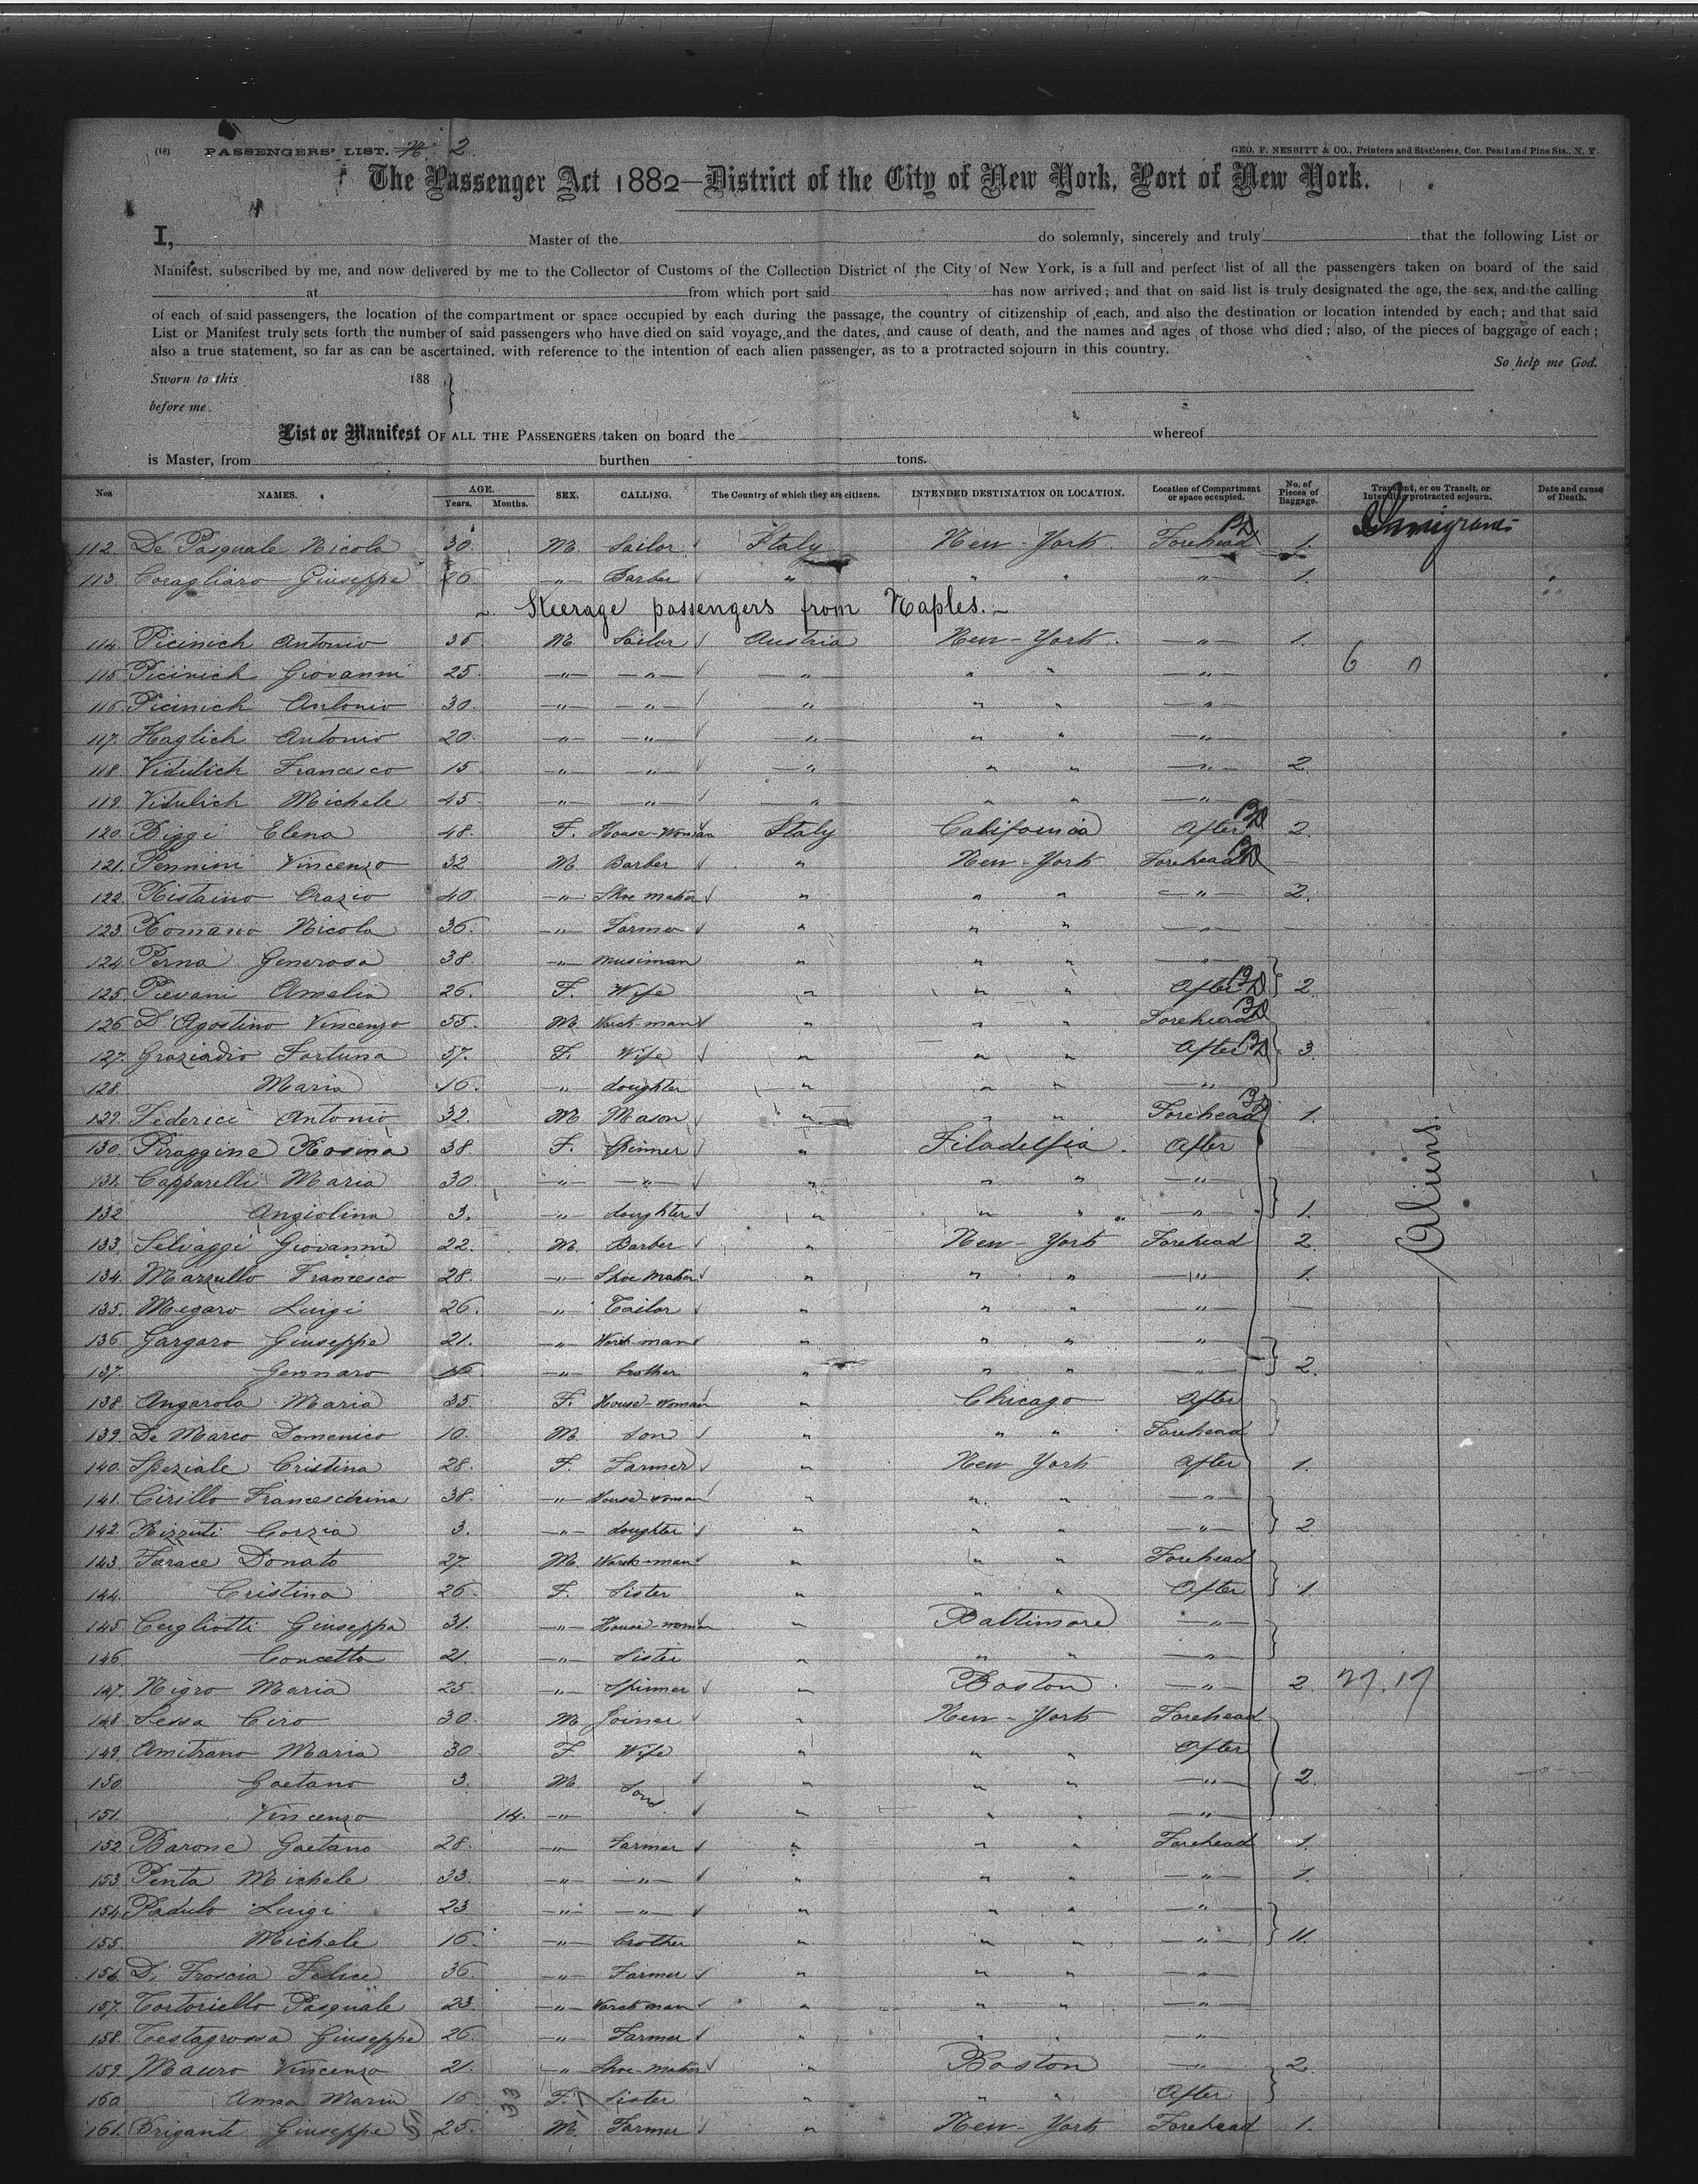 (18) PASSENGERS' LIST. No. 2. GEO. F. NESBITT & CO., Printers and Stationers, Cor. Pearl and Pine Sts., N. Y.
The Passenger Act 1882—District of the City of New York, Port of New York.
I, Master of the do solemnly, sincerely and truly that the following List or
Manifest, subscribed by me, and now delivered by me to the Collector of Customs of the Collection District of the City of New York, is a full and perfect list of all the passengers taken on board of the said
at from which port said has now arrived; and that on said list is truly designated the age, the sex, and the calling
of each of said passengers, the location of the compartment or space occupied by each during the passage, the country of citizenship of each, and also the destination or location intended by each; and that said
List or Manifest truly sets forth the number of said passengers who have died on said voyage, and the dates, and cause of death, and the names and ages of those who died; also, of the pieces of baggage of each;
also a true statement, so far as can be ascertained, with reference to the intention of each alien passenger, as to a protracted sojourn in this country.
So help me God.
Sworn to this 188 ,
before me.
List or Manifest OF ALL THE PASSENGERS taken on board the whereof
is Master, from burthen tons.
Nos NAMES. AGE. Years. Months. SEX. CALLING. The Country of which they are citizens. INTENDED DESTINATION OR LOCATION. Location of Compartment or space occupied. No. of Pieces of Baggage. Transient, or on Transit, or Intending protracted sojourn. Date and cause of Death.
112. De Pasquale Nicola 30. M. Sailor Italy New-York. Forehead 1.
113. Coragliaro Giuseppe 26 " Barber " " " " 1.
Steerage passengers from Naples.
114. Picinich Antonio 36 M Sailor Austria New-York. " 1.
115 Picinich Giovanni 25. " " " " " "
116. Picinich Antonio 30. " " " " " "
117. Haglich Antonio 20. " " " " " "
118. Vidulich Francesco 15 " " " " " " 2
119. Vidulich Michele 45 " " " " " "
120. Biggi Elena 48. F. House-Woman Italy California After 2.
121. Pennini Vincenzo 32 M. Barber " New-York Forehead
122. Ristaino Orazio 40. " Shoe maker " " " " 2.
123. Romano Nicola 36. " Farmer " " " "
124. Perna Generosa 38. " musiman " " " "
125. Pievani Amelia 26. F. Wife " " " After 2
126 D'Agostino Vincenzo 55. M. Work-man " " " Forehead
127. Graziadio Fortuna 57. F. Wife " " " After 3.
128. Maria 16. " doughter " " " "
129. Federici Antonio 32. M Mason " " " Forehead 1.
130. Piraggine Rosina 38 F. Spinner " Filadelfia. After
131. Capparelli Maria 30. " " " " " "
132 Angiolina 3. " doughter " " " " 1.
133. Selvaggi Giovanni 22. M. Barber " New-York Forehead 2.
134. Marzullo Francesco 28. " Shoe Maker " " " " 1.
135. Megaro Luigi 26. " Tailor " " " "
136 Gargaro Giuseppe 21. " Work-man " " " "
137. Gennaro 16 " brother " " " " 2.
138. Angarola Maria 35 F. House-Woman " Chicago After
139. De Marco Domenico 10. M son " " " Forehead
140. Speziale Cristina 28. F. Farmer " New York After 1.
141. Cirillo Franceschina 38. " House-woman " " " "
142. Rizzuti Corzia 3. " doughter " " " " 2
143. Farace Donato 27. M. Work-man " " " Forehead
144. Cristina 26. F. Sister " " " After 1.
145. Cegliotti Giuseppa 31. " House-woman " Baltimore "
146. Concetta 21. " Sister " " " "
147. Nigro Maria 25. " Spinner " Boston. " 2. 27. 17
148. Sessa Ciro 30. M Joiner " New-York Forehead
149. Amitrano Maria 30. F Wife " " " After
150. Gaetano 3. M. Sons " " " " 2.
151. Vincenzo 14. " " " " "
152 Barone Gaetano 28. " Farmer " " " Forehead 1.
153. Penta Michele 33. " " " " " " 1.
154. Padulo Luigi 23 " " " " " "
155. Michele 16. " brother " " " " 11.
156. Di Froscia Felice 36. " Farmer " " " "
157. Tortoriello Pasquale 23. " Work man " " " "
158. Testagrossa Giuseppe 26. " Farmer " " " "
159. Mauro Vincenzo 21. " Shoe-maker " Boston " 2.
160 Anna Maria 16 33 F. 17 Sister " " " After
161. Brigante Giuseppe 25. M. Farmer " New-York Forehead 1.
Aliens.